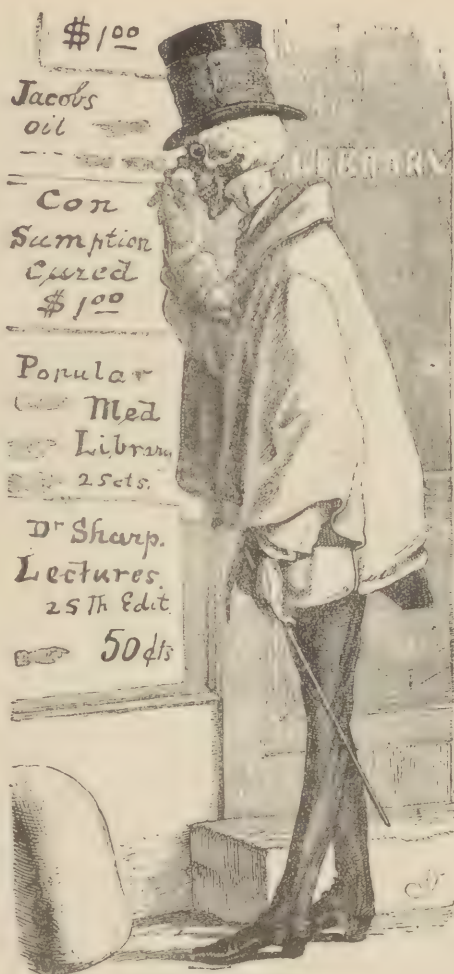 $1 00
Jacobs
oil
Con
Sumption
Cured
$1 00
Popular
Med
Library
25cts.
Dr Sharp.
Lectures.
25 Th Edit
50 cts